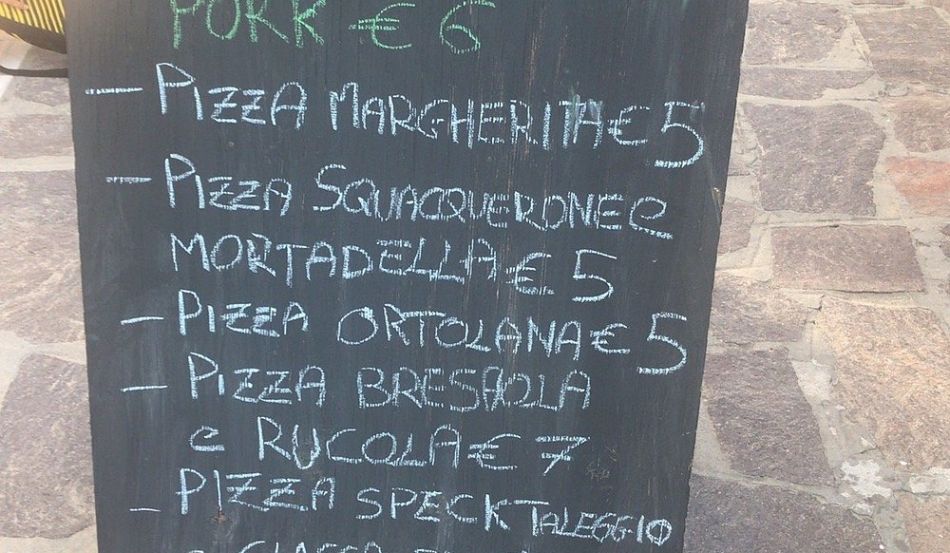 PORK € 6
– PIZZA MARGHERITA € 5
– PIZZA SQUACQUERONE e
MORTADELLA € 5
– PIZZA ORTOLANA € 5
– PIZZA BRESAOLA
e RUCOLA € 7
– PIZZA SPECK TALEGGIO